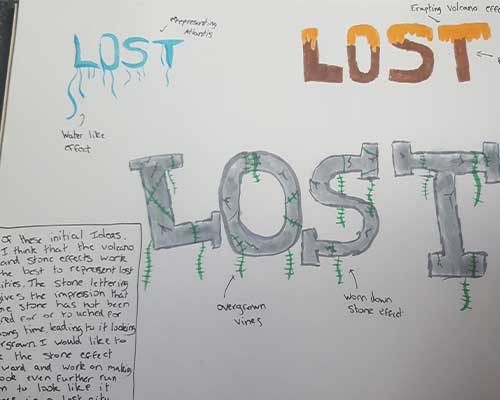 LOST
representing
Atlantis
Water like
effect
Erupting Volcano effe
LOST
LOST
overgrown
vines
worn down
Stone effect
Of these initial Ideas,
I think that the volcano
and stone effects work
the best to represent lost
ities. The stone lettering
gives the impression that
stone has not been
red for or touched for
ong time, leading to it looking
rgrown. I would like to
the stone effect
ward and work on making
ook even further run
to look like it
a lost city